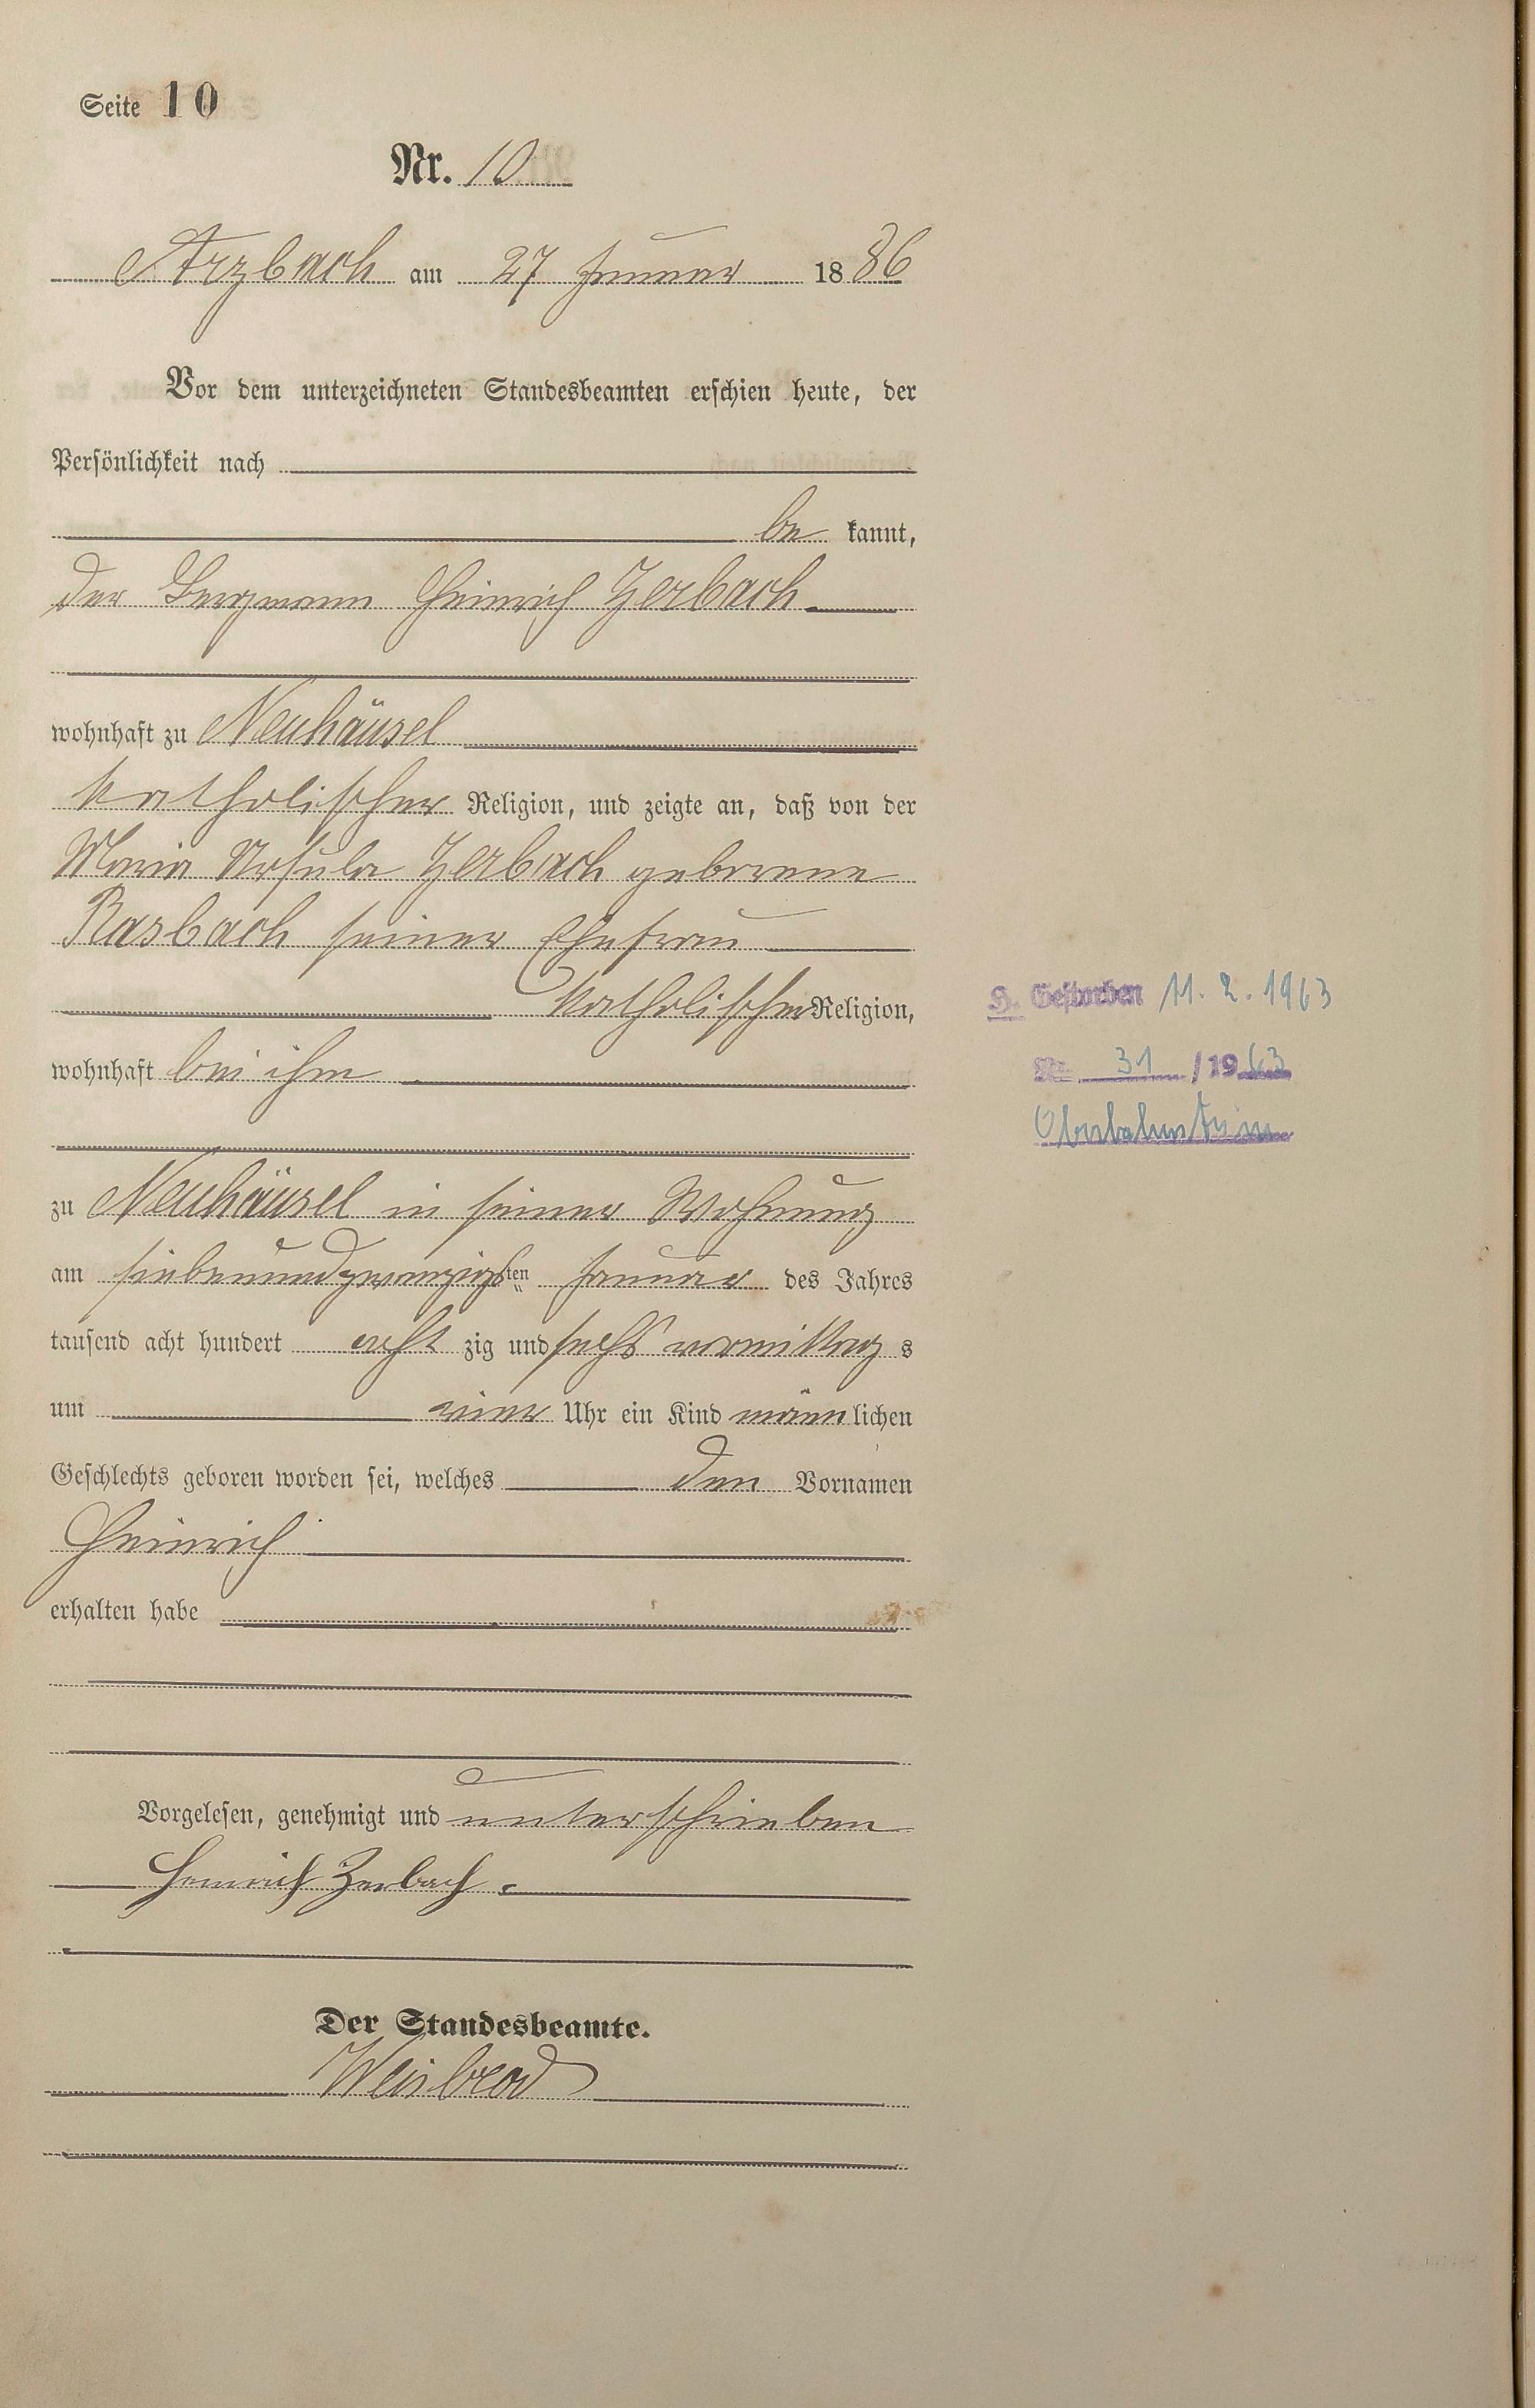 Seite 10
Nr. 10
Arzbach am 27 Januar 1886
Vor dem unterzeichneten Standesbeamten erschien heute, der
Persönlichkeit nach
be kannt,
der Bergmann Heinrich Zerbach
wohnhaft zu Neuhäusel
katholischer Religion, und zeigte an, daß von der
Maria Ursula Zerbach geborene
Rasbach seiner Ehefrau
katholischer Religion,
wohnhaft bei ihm
zu Neuhäusel in seiner Wohnung
am siebenundzwanzigsten Januar des Jahres
tausend acht hundert acht zig und sechs vormittag s
um Uhr ein Kind männlichen
Geschlechts geboren worden sei, welches den Vornamen
Heinrich
erhalten habe
Vorgelesen, genehmigt und unterschrieben
Heinrich Zerbach.
Der Standesbeamte.
Weisbrod
H. Gestorben 11.2.1963
Nr. 31 /1963
Oberlahnstein